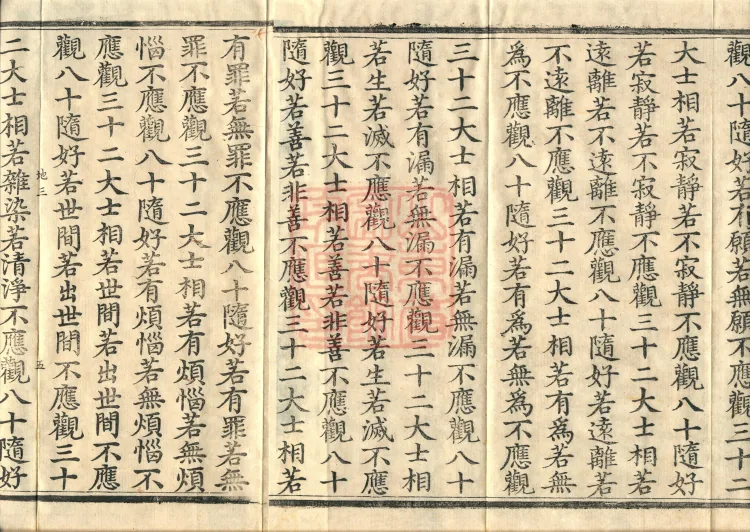 觀八十隨好若有願若無願不應觀三十二
大士相若寂靜若不寂靜不應觀八十隨好
若寂靜若不寂靜不應觀三十二大士相若
遠離若不遠離不應觀八十隨好若遠離若
不遠離不應觀三十二大士相若有為若無
為不應觀八十隨好若有為若無為不應觀
三十二大士相若有漏若無漏不應觀八十
隨好若有漏若無漏不應觀三十二大士相
若生若滅不應觀八十隨好若生若滅不應
觀三十二大士相若善若非善不應觀八十
隨好若善若非善不應觀三十二大士相若
有罪若無罪不應觀八十隨好若有罪若無
罪不應觀三十二大士相若有煩惱若無煩
惱不應觀八十隨好若有煩惱若無煩惱不
應觀三十二大士相若世間若出世間不應
觀八十隨好若世間若出世間不應觀三十
地三
五
二大士相若雜染若清淨不應觀八十隨好